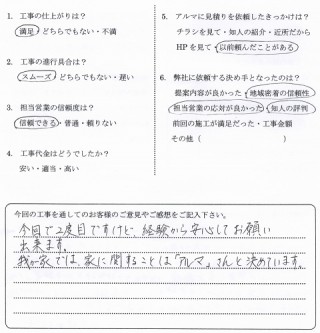 1. 工事の仕上がりは?
満足・どちらでもない・不満
2. 工事の進行具合は?
スムーズ・どちらでもない・遅い
3. 担当営業の信頼度は?
信頼できる・普通・頼りない
4. 工事代金はどうでしたか?
安い・適当・高い
5. アルマに見積りを依頼したきっかけは?
チラシを見て・知人の紹介・近所だから
HPを見て・以前頼んだことがある
6. 弊社に依頼する決め手となったのは?
提案内容が良かった・地域密着の信頼性
担当営業の応対が良かった・知人の評判
前回の施工が満足だった・工事金額
その他（ ）
今回の工事を通してのお客様のご意見やご感想をご記入下さい。
今回で2度目ですけど 経験から安心してお願い
出来ます。
我が家では、家に関することは「アルマ」さんと決めています。